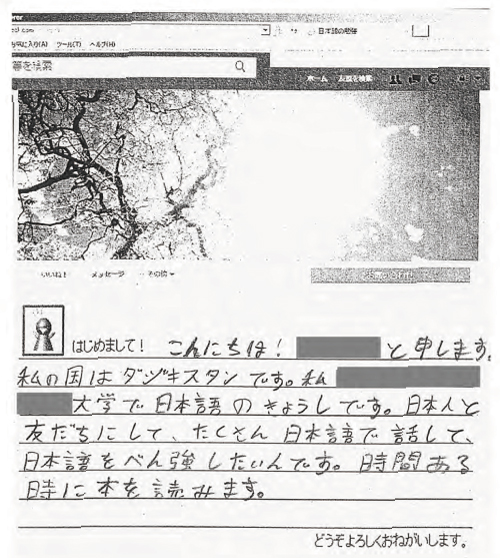 日本語の勉強
ツール(T) ヘルプ(H)
を検索
ホーム 友達を検索
いいね! メッセージ その他
はじめまして! こんにちは! と申します。
私の国はダジキスタンです。私
大学で日本語のきょうしです。日本人と
友だちにして、たくさん日本語で話して、
日本語をべん強したいんです。時間ある
時に本を読みます。
どうぞよろしくおねがいします。